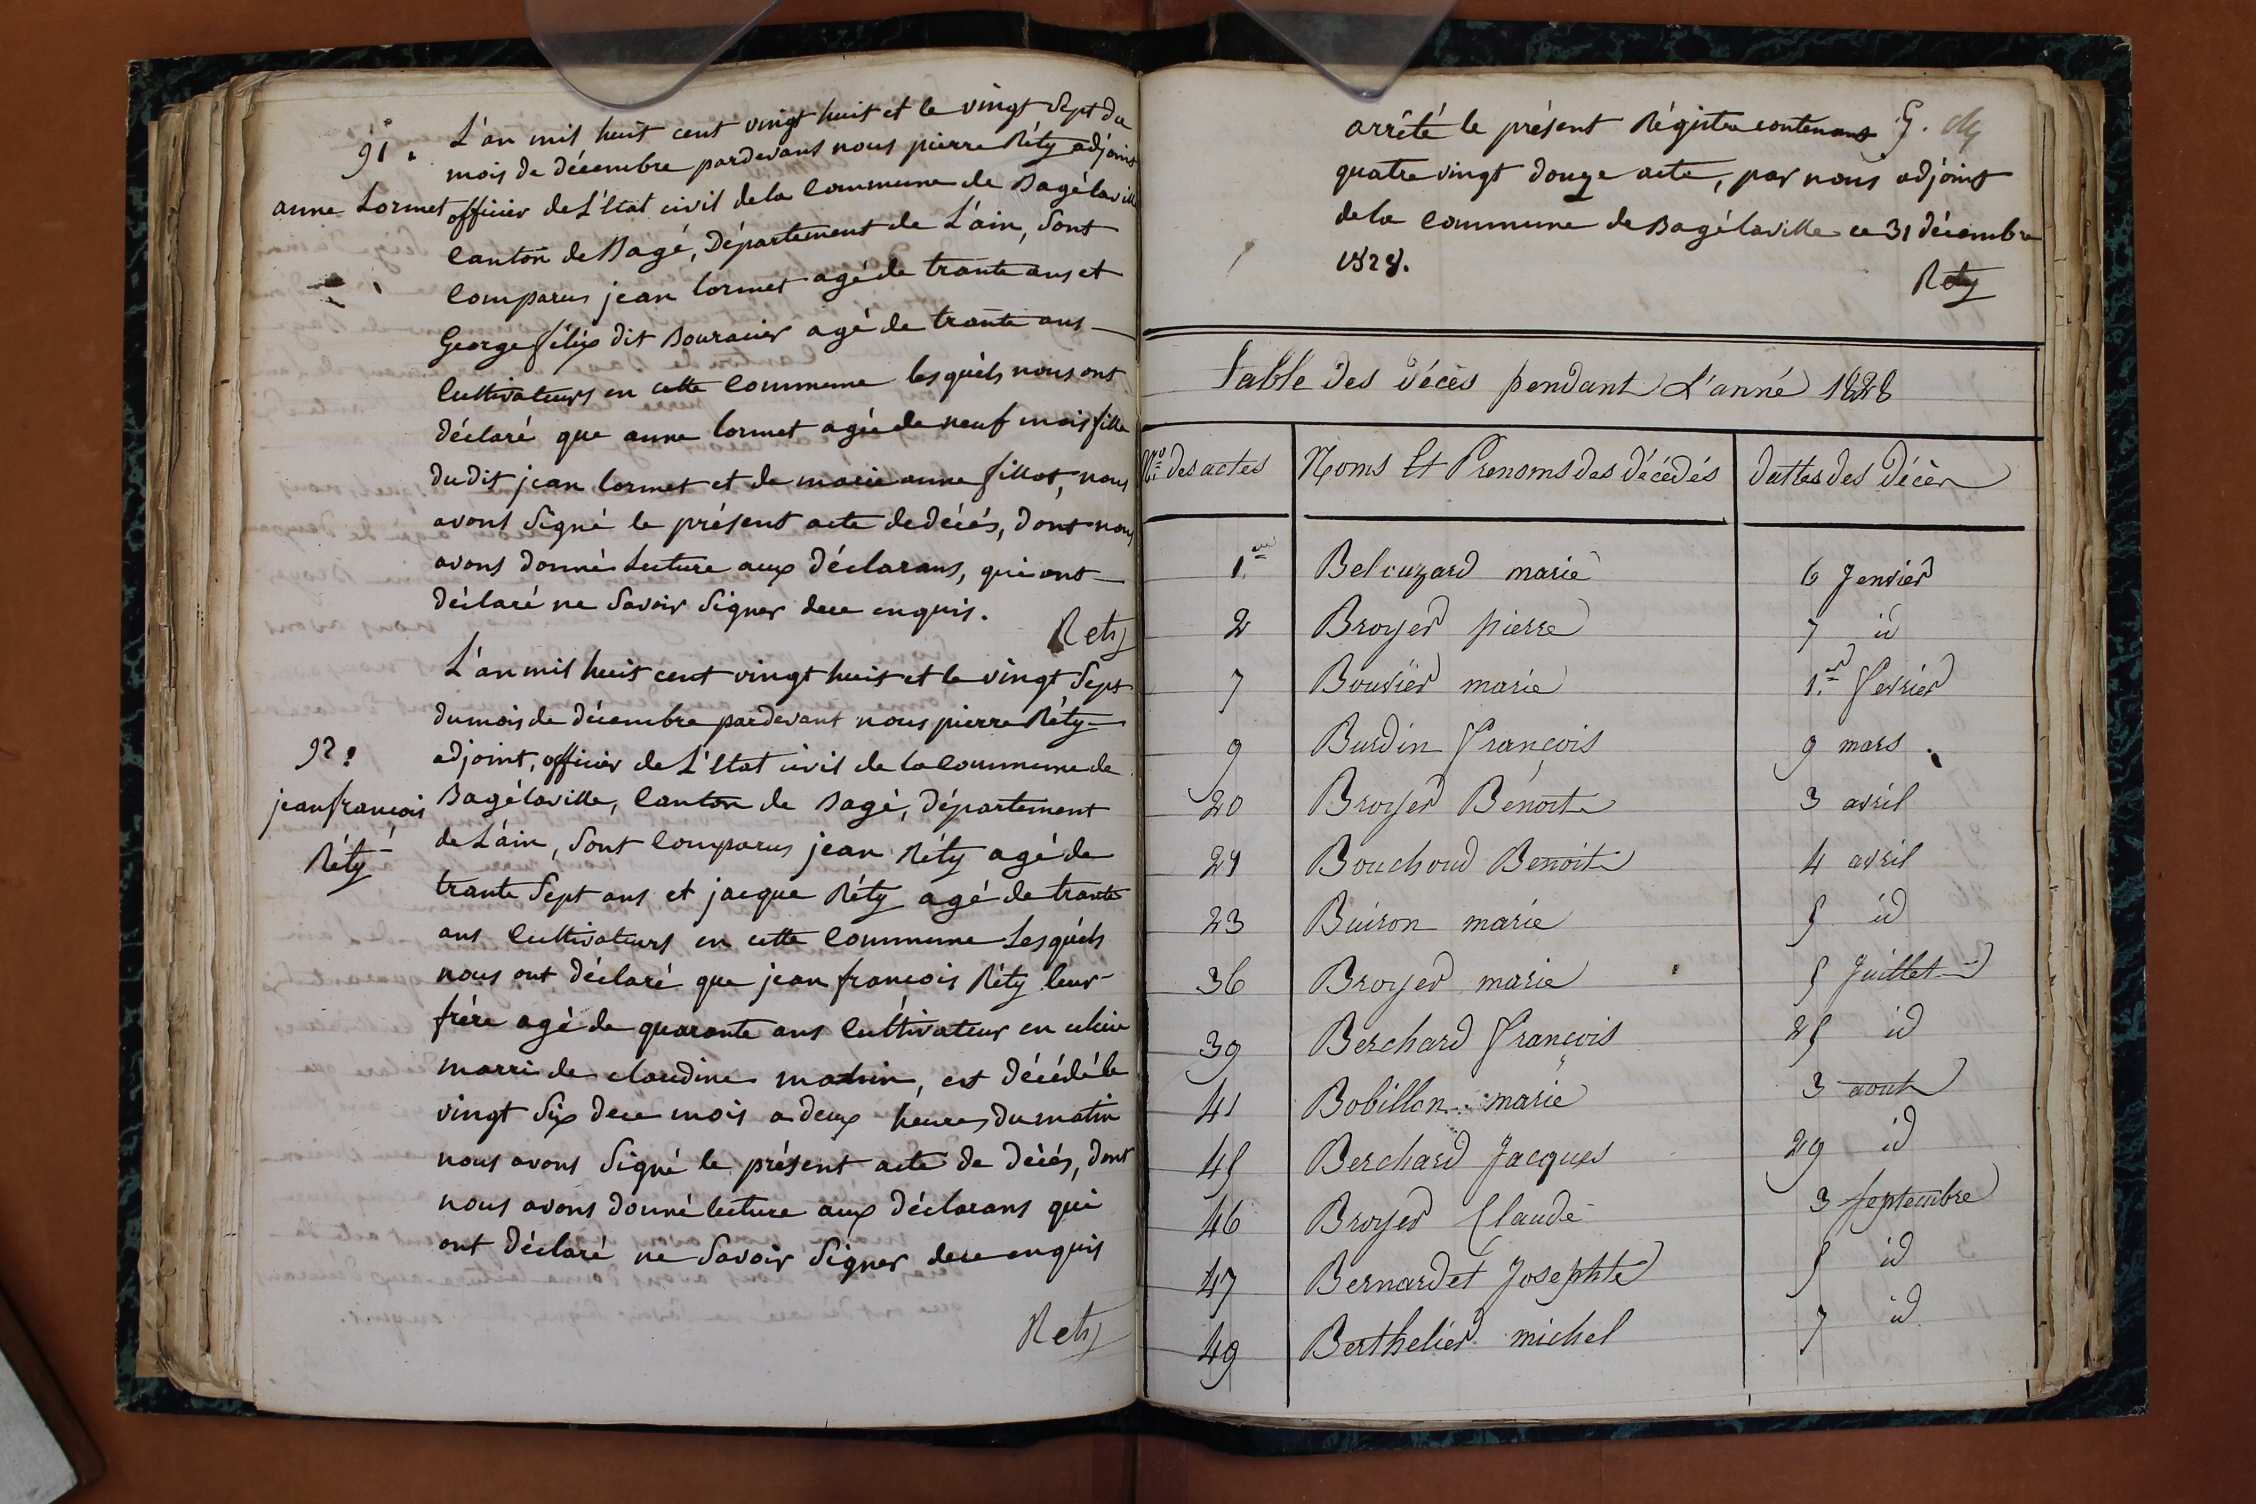 91.
anne Lormet
L'an mil huit cent vingt huit et le vingt sept du
mois de décembre pardevant nous pierre Réty adjoint
officier de L'Etat civil de la Commune de Bagélaville
Canton de Bagé, Département de L'ain, sont
Comparus jean Lormet agé de trante ans et
George félix dit Bouracier agé de trante ans
Cultivateurs en cette Commune lesquels nous ont
déclaré que anne Lormet agée de neuf mois fille
dudit jean Lormet et de marie anne fillot, nous
avons signé le présent acte de décés, dont nous
avons donné Lecture aux Déclarans, qui ont
déclaré ne savoir signer de ce enquis.
Rety
92.
jean françois
Réty
L'an mil huit cent vingt huit et le vingt sept
du mois de décembre pardevant nous pierre Réty
adjoint, officier de L'Etat civil de la Commune de
Bagélaville, Canton de Bagé, Département
de L'ain, sont Comparus jean Réty agé de
trante sept ans et jacque Réty agé de trante
ans Cultivateurs en cette Commune Lesquels
nous ont déclaré que jean françois Réty leur
frére agé de quarante ans Cultivateur en
marri de claudine, est décédé le
vingt six de ce mois a deux heures du matin
nous avons signé le présent acte de décés, dont
nous avons donné lecture aux déclarans qui
ont déclaré ne savoir signer de ce enquis
Rety
arrêté le présent Régistre contenant
quatre vingt douze acte, par nous adjoint
de la Commune de Bagélaville ce 31 décembre
1828.
Rety
Table des décès pendant L'anné 1828
Nos des actes Noms Et Prenoms des décédés dattes des décès
1.er Belcuzard marie 6 Jenvier
2 Broyer pierre 7 id
7 Bouvier marie 1.er Fevrier
9 Burdin François 9 mars
20 Broyer Bénoit 3 avril
21 Bouchoud Benoit 4 avril
23 Buiron marie 5 id
36 Broyer marie 5 Juillet
39 Berchard François 25 id
41 Bobillon marie 3 aout
45 Berchard Jacques 29 id
46 Broyer Claude 3 septembre
47 Bernardet Josephte 5 id
49 Berthelier michel 7 id